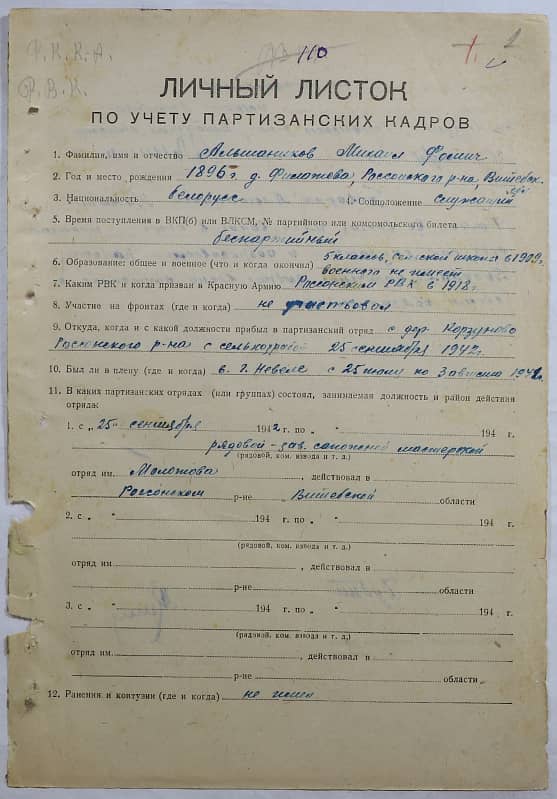 Р.К.К.А.
Р.В.К.
110
2
ЛИЧНЫЙ ЛИСТОК
ПО УЧЕТУ ПАРТИЗАНСКИХ КАДРОВ
1. Фамилия, имя и отчество Альшаников Михаил Фомич
2. Год и место рождения 1896 г. д. Филатева, Россонского р-на, Витебск. обл
3. Национальность белорусс 4. Соцположение служащий
5. Время поступления в ВКП(б) или ВЛКСМ, № партийного или комсомольского билета
беспартийный
6. Образование: общее и военное (что и когда окончил) 5 классов, сельской школы в 1909 г.
военного не имеет
7. Каким РВК и когда призван в Красную Армию Россонским РВК в 1918 г.
8. Участие на фронтах (где и когда) не участвовал
9. Откуда, когда и с какой должности прибыл в партизанский отряд с дер. Корзуново
Россонского р-на с сельхозработ 25 сентября 1942 г.
10. Был ли в плену (где и когда) в г. Невеле с 25 июня по 3 августа 194
11. В каких партизанских отрядах (или группах) состоял, занимаемая должность и район действия
отряда:
1. с „25" сентября 1942 г. по „ " 194 г.
рядовой - зав. сапожной мастерской
(рядовой, ком. взвода и т. д.)
отряд им. Молотова , действовал в
Россонском р-не Витебской области
2. с „ " 194 г. по „ " 194 г.
(рядовой, ком. взвода и т. д.)
отряд им. , действовал в
р-не области
3. с „ " 194 г. по „ " 194 г.
(рядовой, ком. взвода и т. д.)
отряд им. , действовал в
р-не области
12. Ранения и контузии (где и когда) не имел